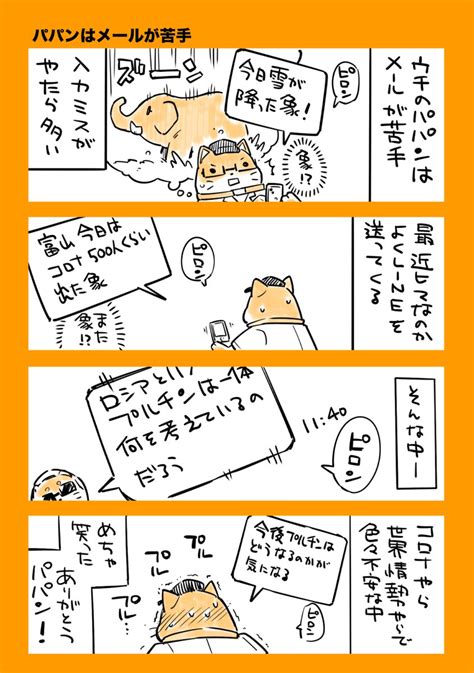 パパンはメールが苦手
ウチのパパンは
メールが苦手
ピロン
今日雪が
降った象！
象！？
ズーン
入力ミスが
やたら多い
最近ヒマなのか
よくLINEを
送ってくる
ピロン
富山今日は
コロナ500人くらい
出た象
また
象！？
そんな中ー
ピロン
11:40
ロシアといい
プルチンは一体
何を考えているの
だろう
コロナやら
世界情勢やらで
色々不安な中
ピロン
今後プルチンは
どうなるのかが
気になる
プル
プル
プル
めちゃ
笑った
ありがとう
パパン！